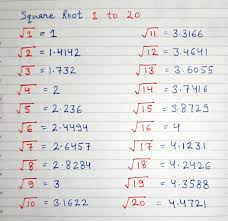 Square Root 1 to 20
√1 = 1
√2 = 1.4142
√3 = 1.732
√4 = 2
√5 = 2.236
√6 = 2.4494
√7 = 2.6457
√8 = 2.8284
√9 = 3
√10 = 3.1622
√11 = 3.3166
√12 = 3.4641
√13 = 3.6055
√14 = 3.7416
√15 = 3.8729
√16 = 4
√17 = 4.1231
√18 = 4.2426
√19 = 4.3588
√20 = 4.4721